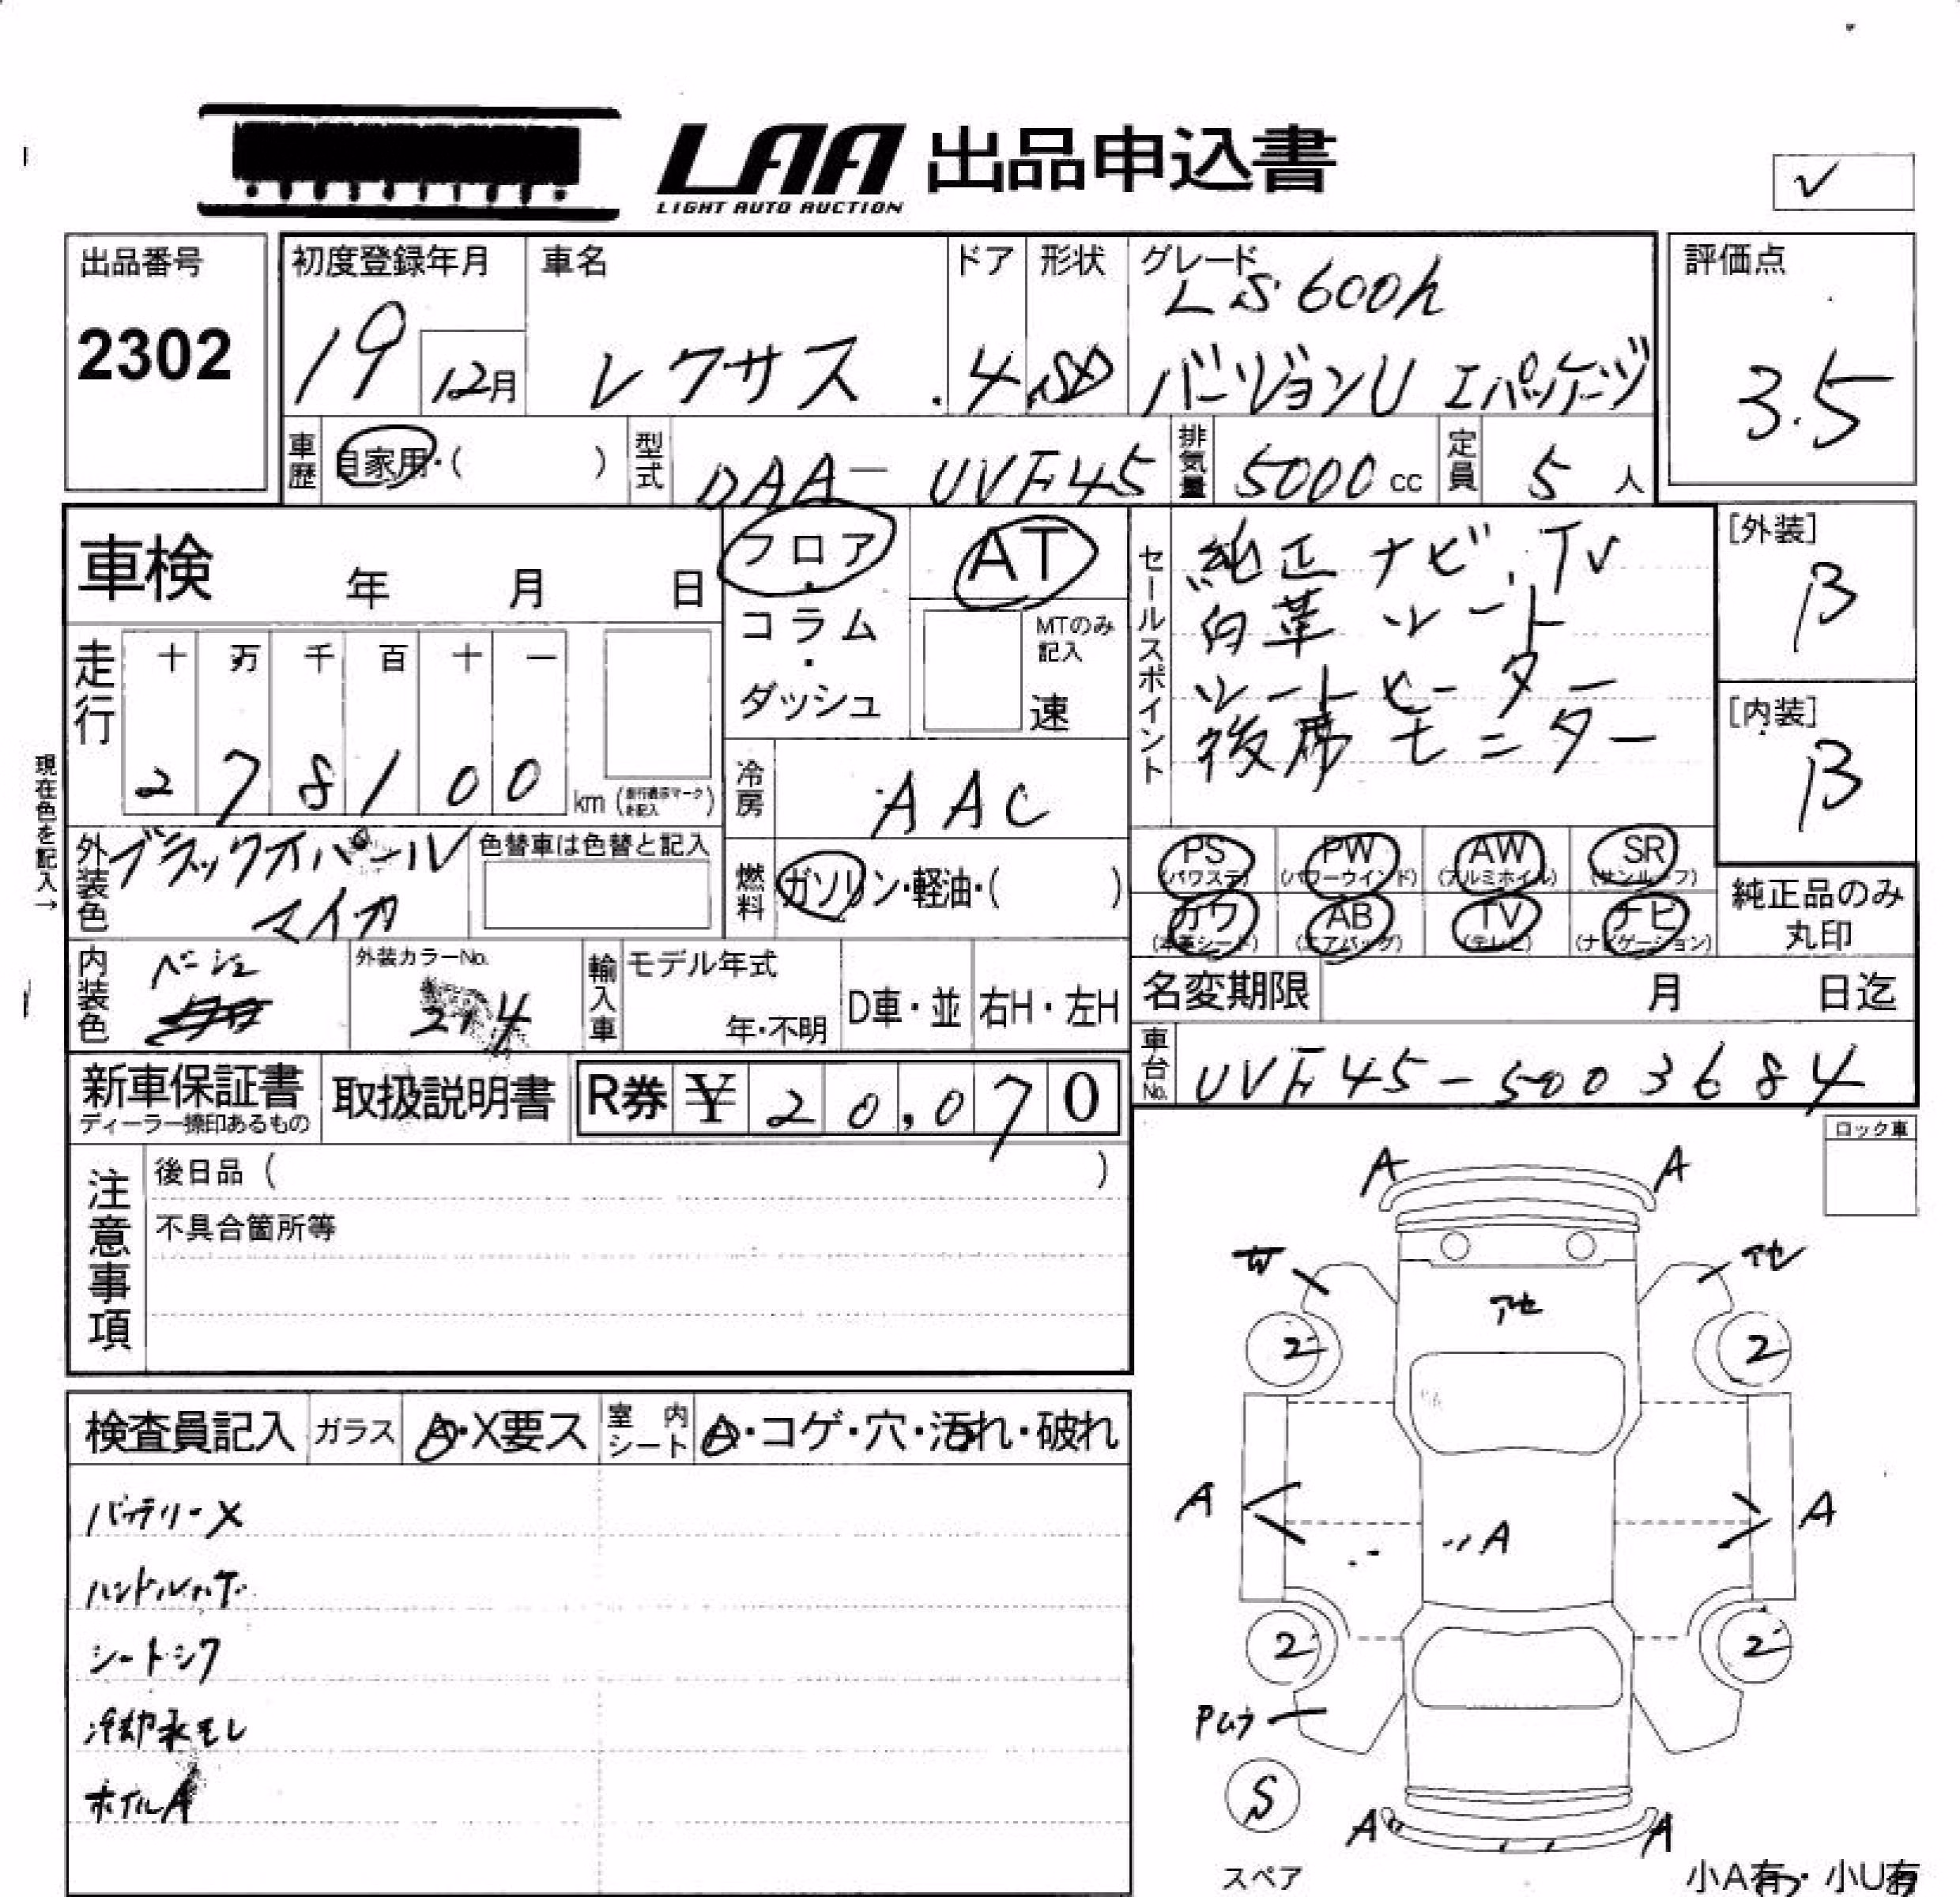 LAA 出品申込書
LIGHT AUTO AUCTION
✓
出品番号
2302
初度登録年月
19 12月
車名
レクサス
ドア
4
形状
SD
グレード
LS600h
バージョンU Iパッケージ
評価点
3.5
車歴
自家用・( )
型式
DAA-UVF45
排気量
5000cc
定員
5人
車検 年 月 日
フロア・コラム・ダッシュ
AT
MTのみ記入
速
セールスポイント
純正ナビ.TV
白革シート
シートヒーター
後席モニター
[外装]
B
[内装]
B
走行
十 万 千 百 十 一
2 7 8 1 0 0 km
現在色を記入→
冷房
AAC
外装色
ブラックオパール
マイカ
色替車は色替と記入
燃料
ガソリン・軽油・( )
PS (パワステ) PW (パワーウインド) AW (アルミホイル) SR (サンルーフ)
カワ (本革シート) AB (エアバッグ) TV (テレビ) ナビ (ナビゲーション)
純正品のみ
丸印
内装色
ベージュ
外装カラーNo.
214
輸入車
モデル年式
年・不明
D車・並
右H・左H
名変期限 月 日迄
車台No.
UVF45-5003684
新車保証書
ディーラー捺印あるもの
取扱説明書
R券 ¥ 20,070
注意事項
後日品 ( )
不具合箇所等
ロック車
検査員記入
ガラス
A・X要ス
室内シート
A・コゲ・穴・汚れ・破れ
バッテリーX
ハンドルハゲ
シートシワ
冷却水モレ
ホイルA
A A
アセ
アセ
2 2
A A
A
2 2
Pムラ
S
スペア
A A
小A有・小U有